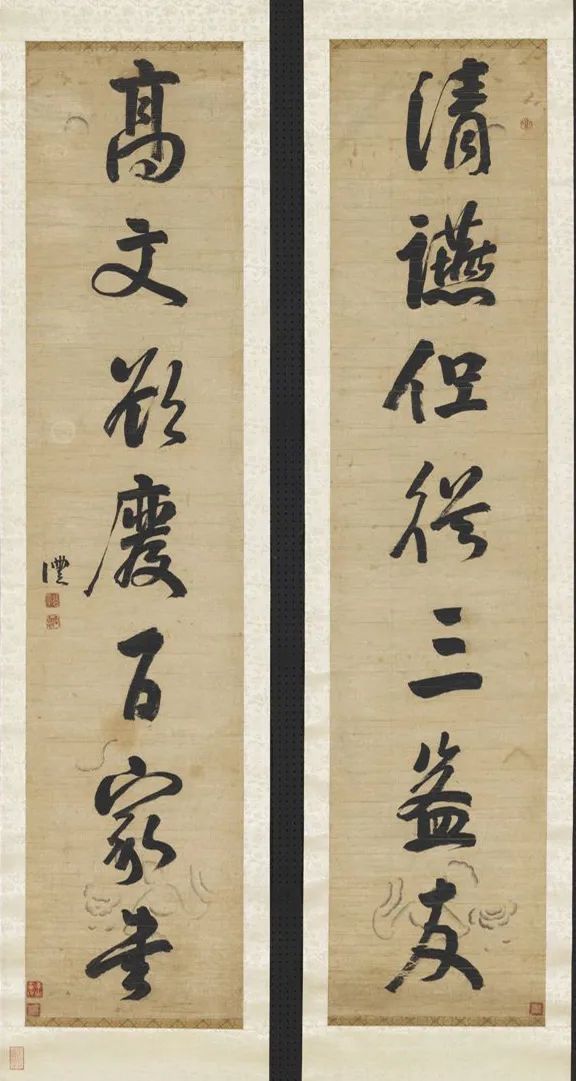 清讌但從三益友
高文欲廢百家書
灃